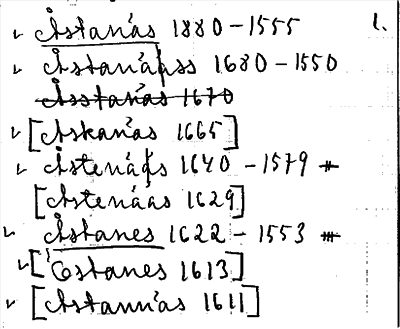 Åstanås 1880-1555 1.
Åstanååss 1680-1550
Åsstanås 1670
[Askanås 1665]
Åstenås 1640-1579 #
[Astenåås 1629]
Åstanes 1622-1553 #
[Estanes 1613]
[Astannås 1611]